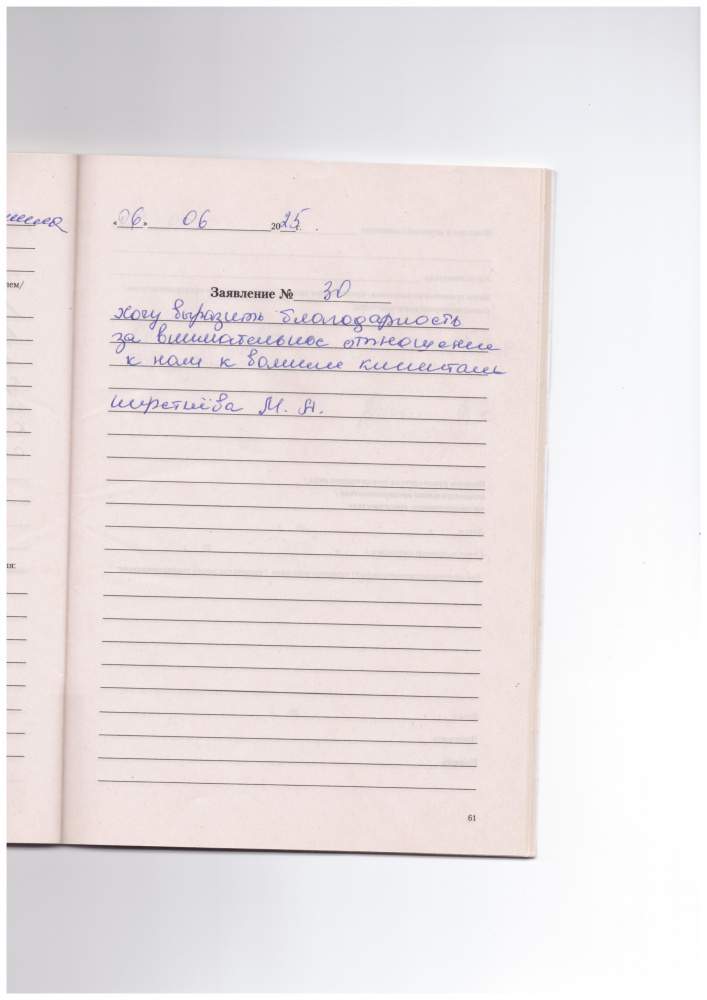 «06» 06 2025 г.
ем/
Заявление № 30
хочу выразить благодарность
за внимательное отношение
к нам к вашим клиентам
М. А.
ия:
61